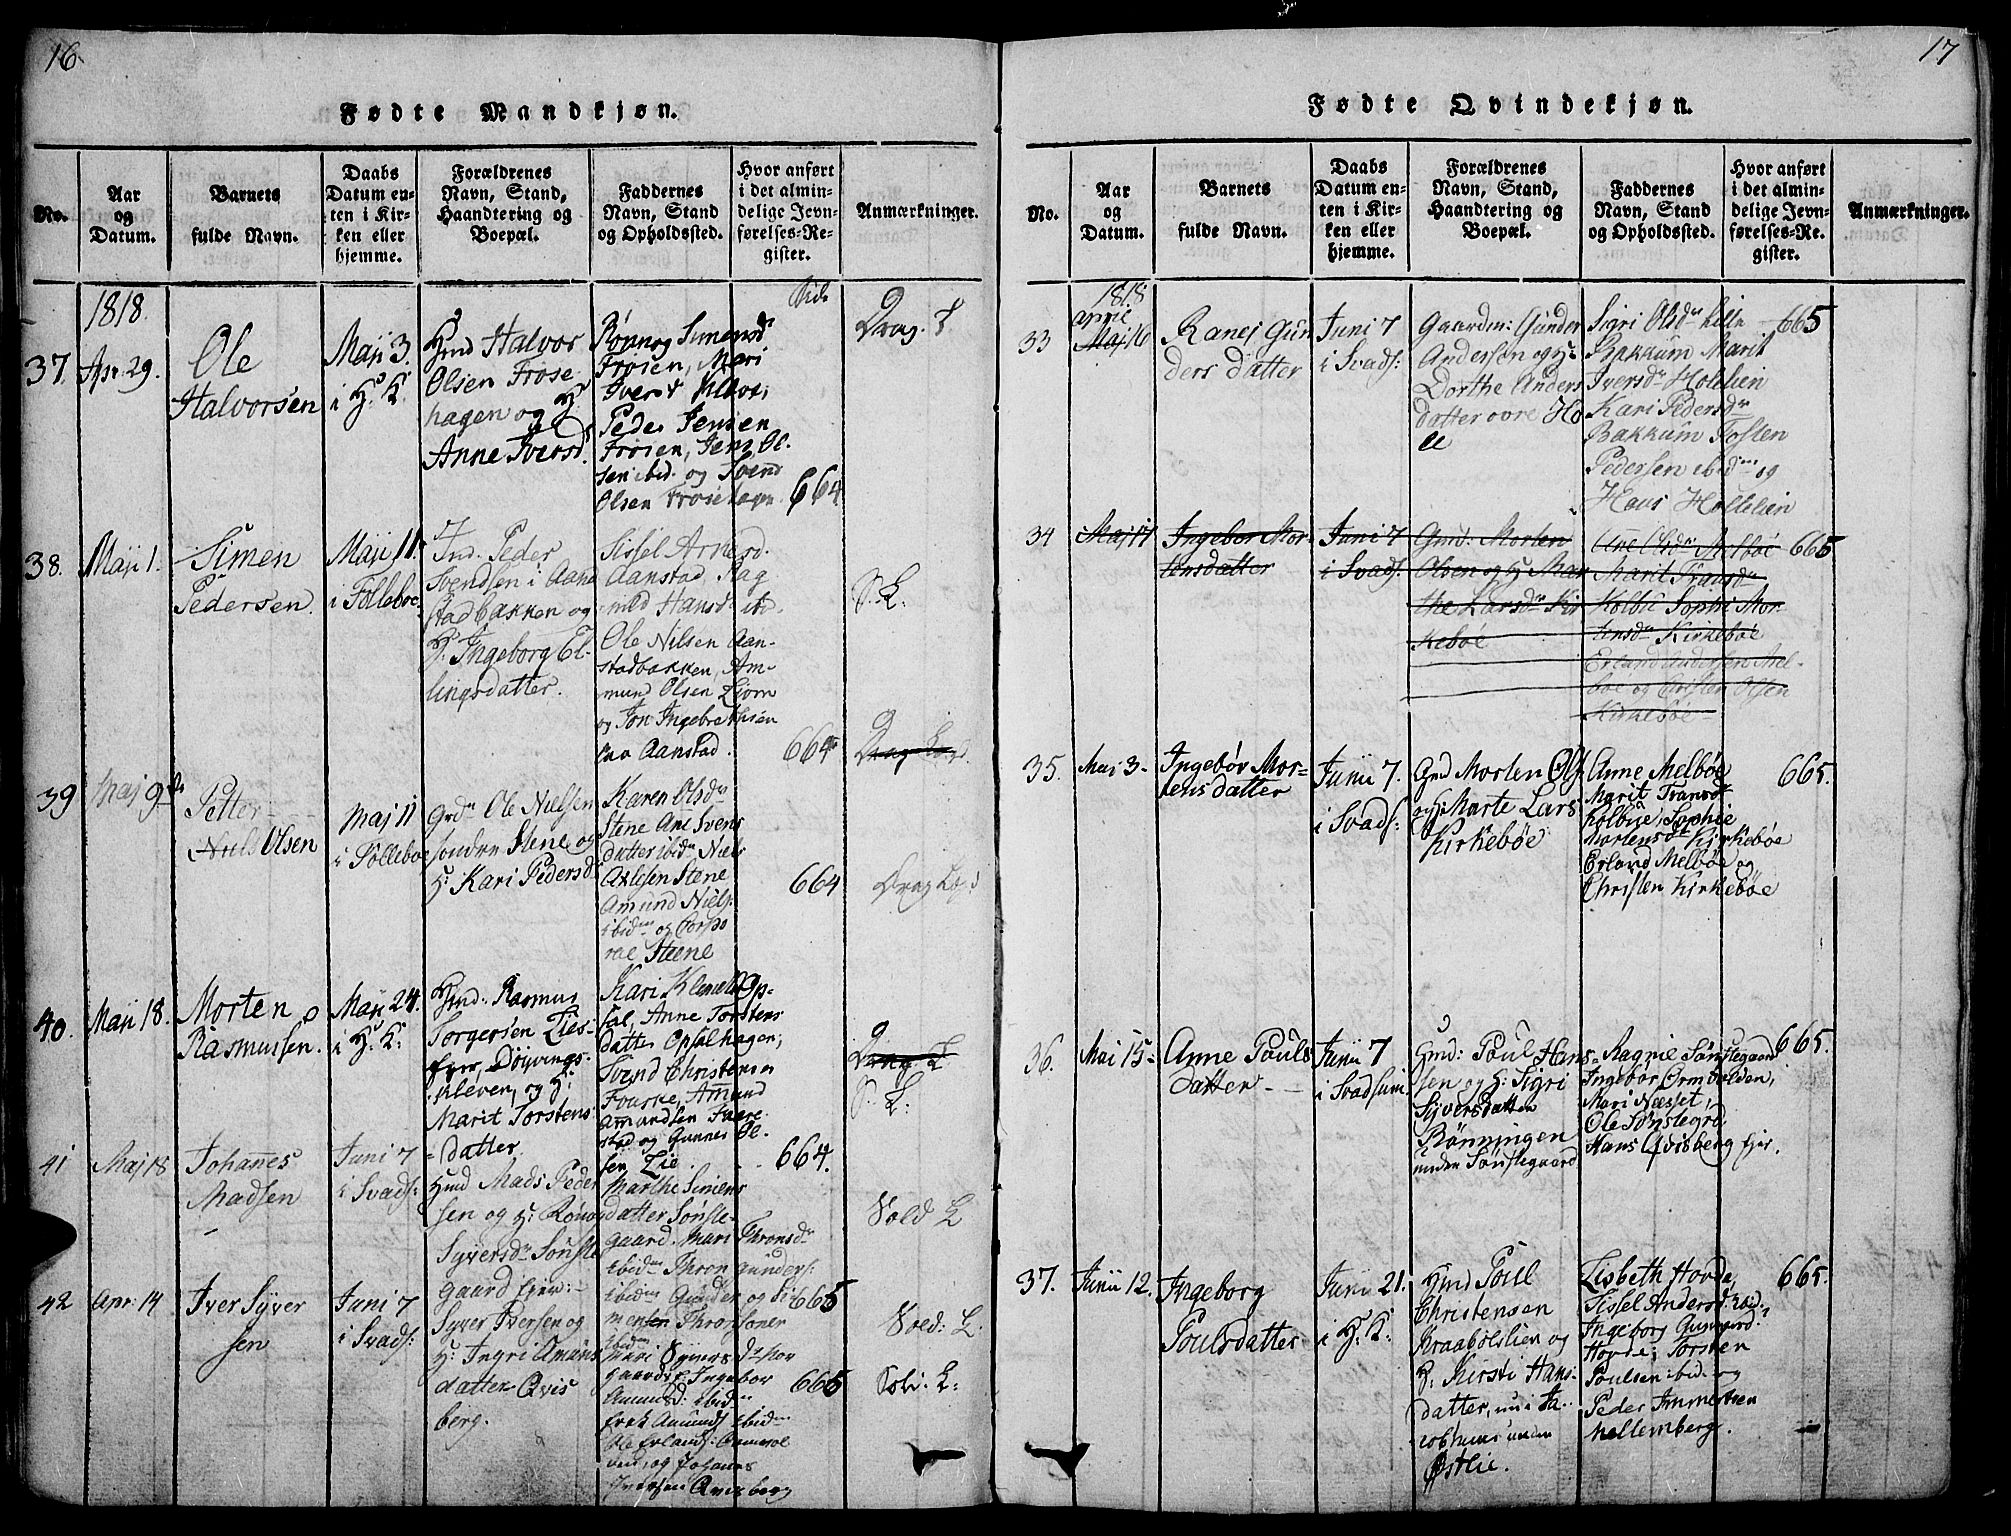 16.
Fødte Mandkjøn.
No.
Aar
og
Datum.
Barnets
fulde Navn.
Daabs
Datum en-
ten i Kir-
ken eller
hjemme.
Forældrenes
Navn, Stand,
Haandtering og
Boepæl.
Faddernes
Navn, Stand
og Opholdssted.
Hvor anført
i det almin-
delige Jevn-
førelses-Re-
gister.
Anmærkninger.
1818.
37.
Apr. 29.
Ole
Halvorsen
Maji 3.
i H: K:
Gmd Halvor
Olsen Frøse
hagen og H:
Anne Iversd.
Rønnog Simensd
Frøisen, Mari
Iversd
Peder Jensen
Frøisen, Jens Ol-
sen ibid. og Svend
Olsen Frøsehagen
Side
664
Drag. L
38.
Maji 1.
Simen
Pedersen.
Maji 11.
i Følleboe.
Ind. Peder
Svendsen i Aan
stadbakken og
H. Ingeborg El-
lingsdatter.
Sissel Arnesd.
Aanstad, Rag
nild Hansd ibd.
Ole Nilsen Aan-
stadbakken, Am-
mund Olsen Liom
og Jon Ingebrethsen
paa Aanstad.
664
S. L:
39
Maj 9de
Petter
Niels Olsen
Maj 11
i Følleboe
Grdm Ole Nielsen
søndre Stene og
H: Kari Pedersd
Karen Olsdr
Stene Ane Svens
datter ibidm Niels
Axlesen Stene
Amund Niels:
ibidm og Corpo
ral Steene
664
Drag. Legd.
Drag Legd
40.
Maji 18.
Morten
Rasmussen.
Maji 24.
i H: K:
Gmd: Rasmus
Torgersen Lies-
Eyer, Døyvings-
kleven, og H:
Marit Torstens-
datter.
Kari Klemetsd Op-
sal, Anne Torstens
datter Opsalhagen;
Svend Christensen
Fouske, Amund
Amundsen Fuare-
stad og Gunner Ol-
sen Lie.
664.
Drag. L
S: L:
41
Maj 18
Johannes
Madsen
Juni 7
i Svads:
Gmd Mads Peder
sen og H: Rønnog
Syversdr Sønste
gaard Ejer:
Marthe Simens
datter Sønste-
gaard. Mari Thronsdr
ibidm Thron Gunders:
ibidm Gunder og Si
mensen Thronsøner
ibidm
665
Vold L
42
Apr: 14
Iver Syver
sen
Juni 7
i Svads:
Syver Iversen og
H: Ingri Amuns
datter Qvis
berg.
Mari Syversdr Nor
gaards, Ingebor
Amunsd: ibidm
Erek Amunds ibidm
Ole Erlands:
ven, og Johannes
Iversen Qvisberg
665
Vold: L:
Solv. L:
17
Fødte Qvindekjøn.
No.
Aar
og
Datum.
Barnets
fulde Navn.
Daabs
Datum en-
ten i Kir-
ken eller
hjemme.
Forældrenes
Navn, Stand,
Haandtering og
Boepæl.
Faddernes
Navn, Stand
og Opholdssted.
Hvor anført
i det almin-
delige Jevn-
førelses-Re-
gister.
Anmærkninger.
1818
33
April
Maj 16
Ranej Gun
ders datter
Juni 7
i Svads:
Gaardm: Gunder
Andersen og H:
Dorthe Anders
datter øvre Ho
le
Sigri Olsdr lille
Bakkum Marit
Iversdr Holelien
Kari Pedersdr
Bakkum Tosten
Pedersen ibidm og
Hans Hollelien
665
34
Maj 17
Ingebor Mor-
tensdatter
Juni 7
i Svads:
Gmd: Morten
Olsen og H: Mar
the Larsdr Kir
kebøe
Ane Olsdr Melbøe
Marit Transdr
Kolbu Sophi Mor-
tensdr Kirkebøe
Erland Andersen Mel-
bøe og Christen Olsen
Kirkebøe
665
35.
Mai 3-
Ingebør Mor-
tensdatter
Junii 7
i Svads:
Gmd Morten Ols
og H: Marte Lars
Kirkebøe
Anne Melbøe
Marit Transdr
Kolbue, Sophie
Mortensdr Kirkebøe
Erland Melbøe og
Christen Kirkebøe
665.
36.
Mai 15-
Anne Pouls
datter
Junii 7
i Svadsum
Gmd: Poul Hans-
sen og H: Sigri
Syversdatter
Rønningen
under Sønstegaard
Ragnie Sønstegaard
Ingebør Ormdalden,
Mari Næsset,
Ole Sønstegrd
Hans Qvisberg Ejer.
665.
37.
Junii 12.
Ingeborg
Poulsdatter
Junii 21.
i H: K:
Gmd Poul
Christensen
Kraabølslien og
H. Kirsti Hans-
datter, nu i Ja-
cobhuus under
Østlie.
Lisbeth Hovde,
Sissel Andersd: ibid.
Ingeborg Gunnersd.
Hovde; Torsten
Poulsen ibid. og
Peder Immertsen
Mellemberg.
665.